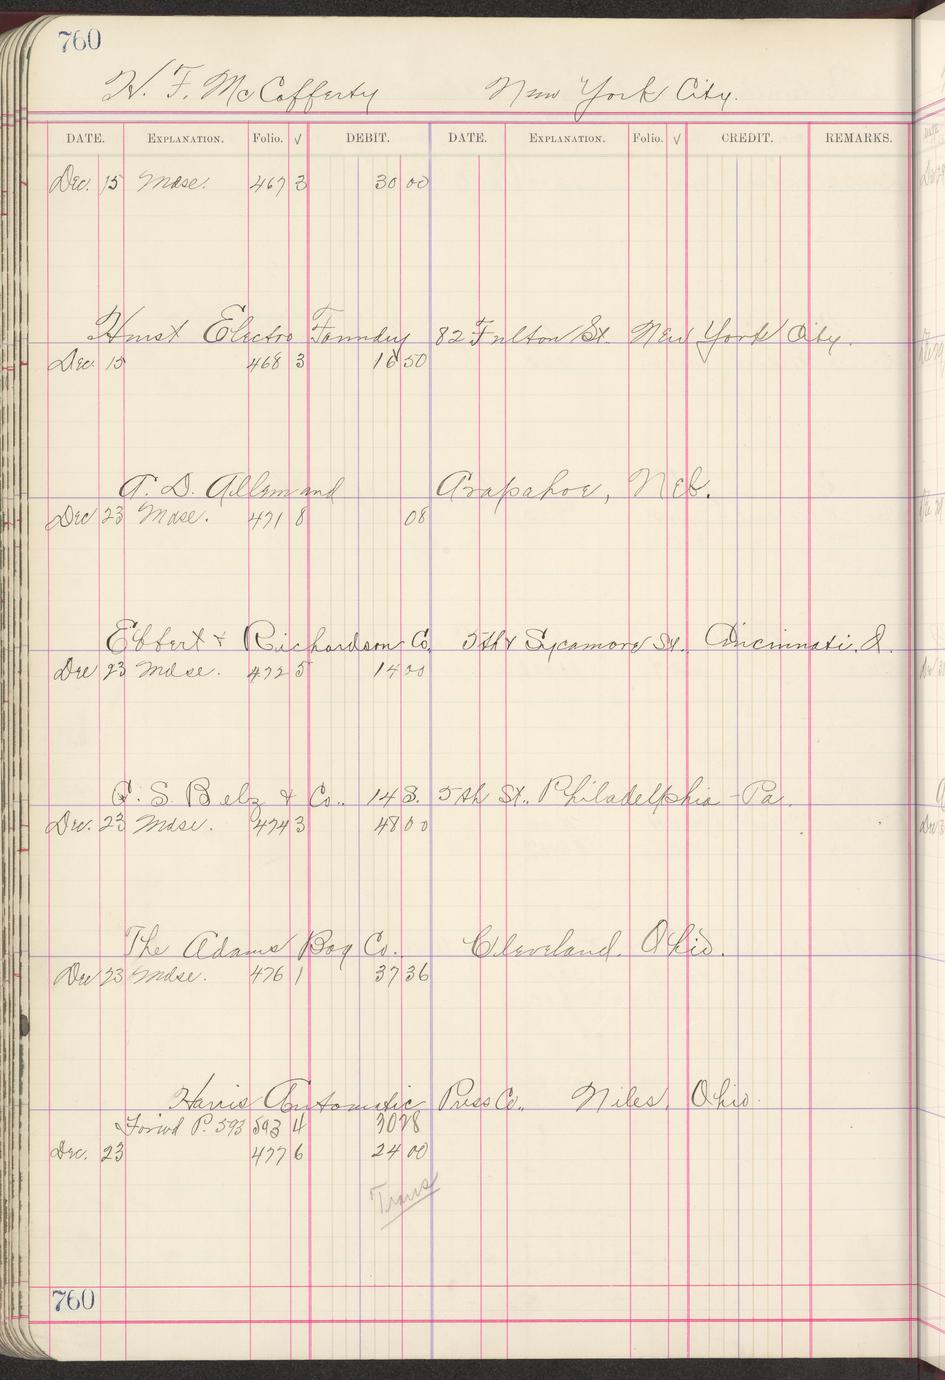 760
H. F. McCafferty New York City.
DATE. EXPLANATION. Folio. √ DEBIT. DATE. EXPLANATION. Folio. √ CREDIT. REMARKS.
Dec. 15 Mdse. 467 3 30 00
Hurst Electro Foundry 82 Fulton St. New York City.
Dec. 15 468 3 16 50
A. D. Allemand Arapahoe, Neb.
Dec 23 Mdse. 471 8 08
Ebbert & Richardson Co. 5th & Sycamore St. Cincinnati, O.
Dec 23 Mdse. 472 5 14 00
C. S. Belz & Co.. 14 S. 5th St., Philadelphia - Pa.
Dec. 23 Mdse. 474 3 48 00
The Adams Bag Co. Cleveland. Ohio.
Dec 23 Mdse. 476 1 37 36
Harris Automatic Press Co., Niles, Ohio.
Forwd P. 593 593 4
Dec. 23 477 6 24 00
Trans
760